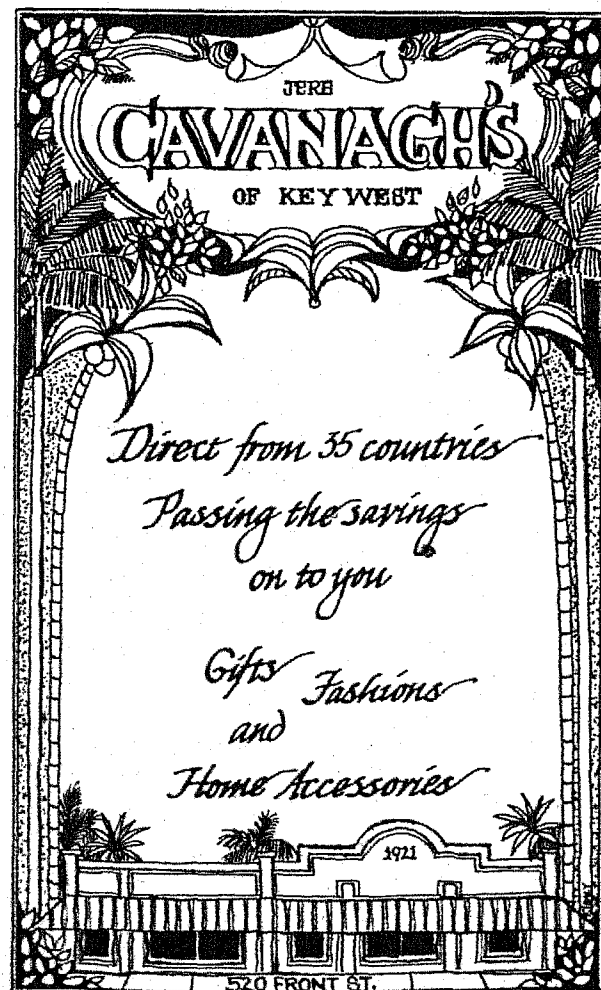 JERE
CAVANAGH'S
OF KEY WEST
Direct from 35 countries
Passing the savings
on to you
Gifts Fashions
and
Home Accessories
1921
520 FRONT ST.